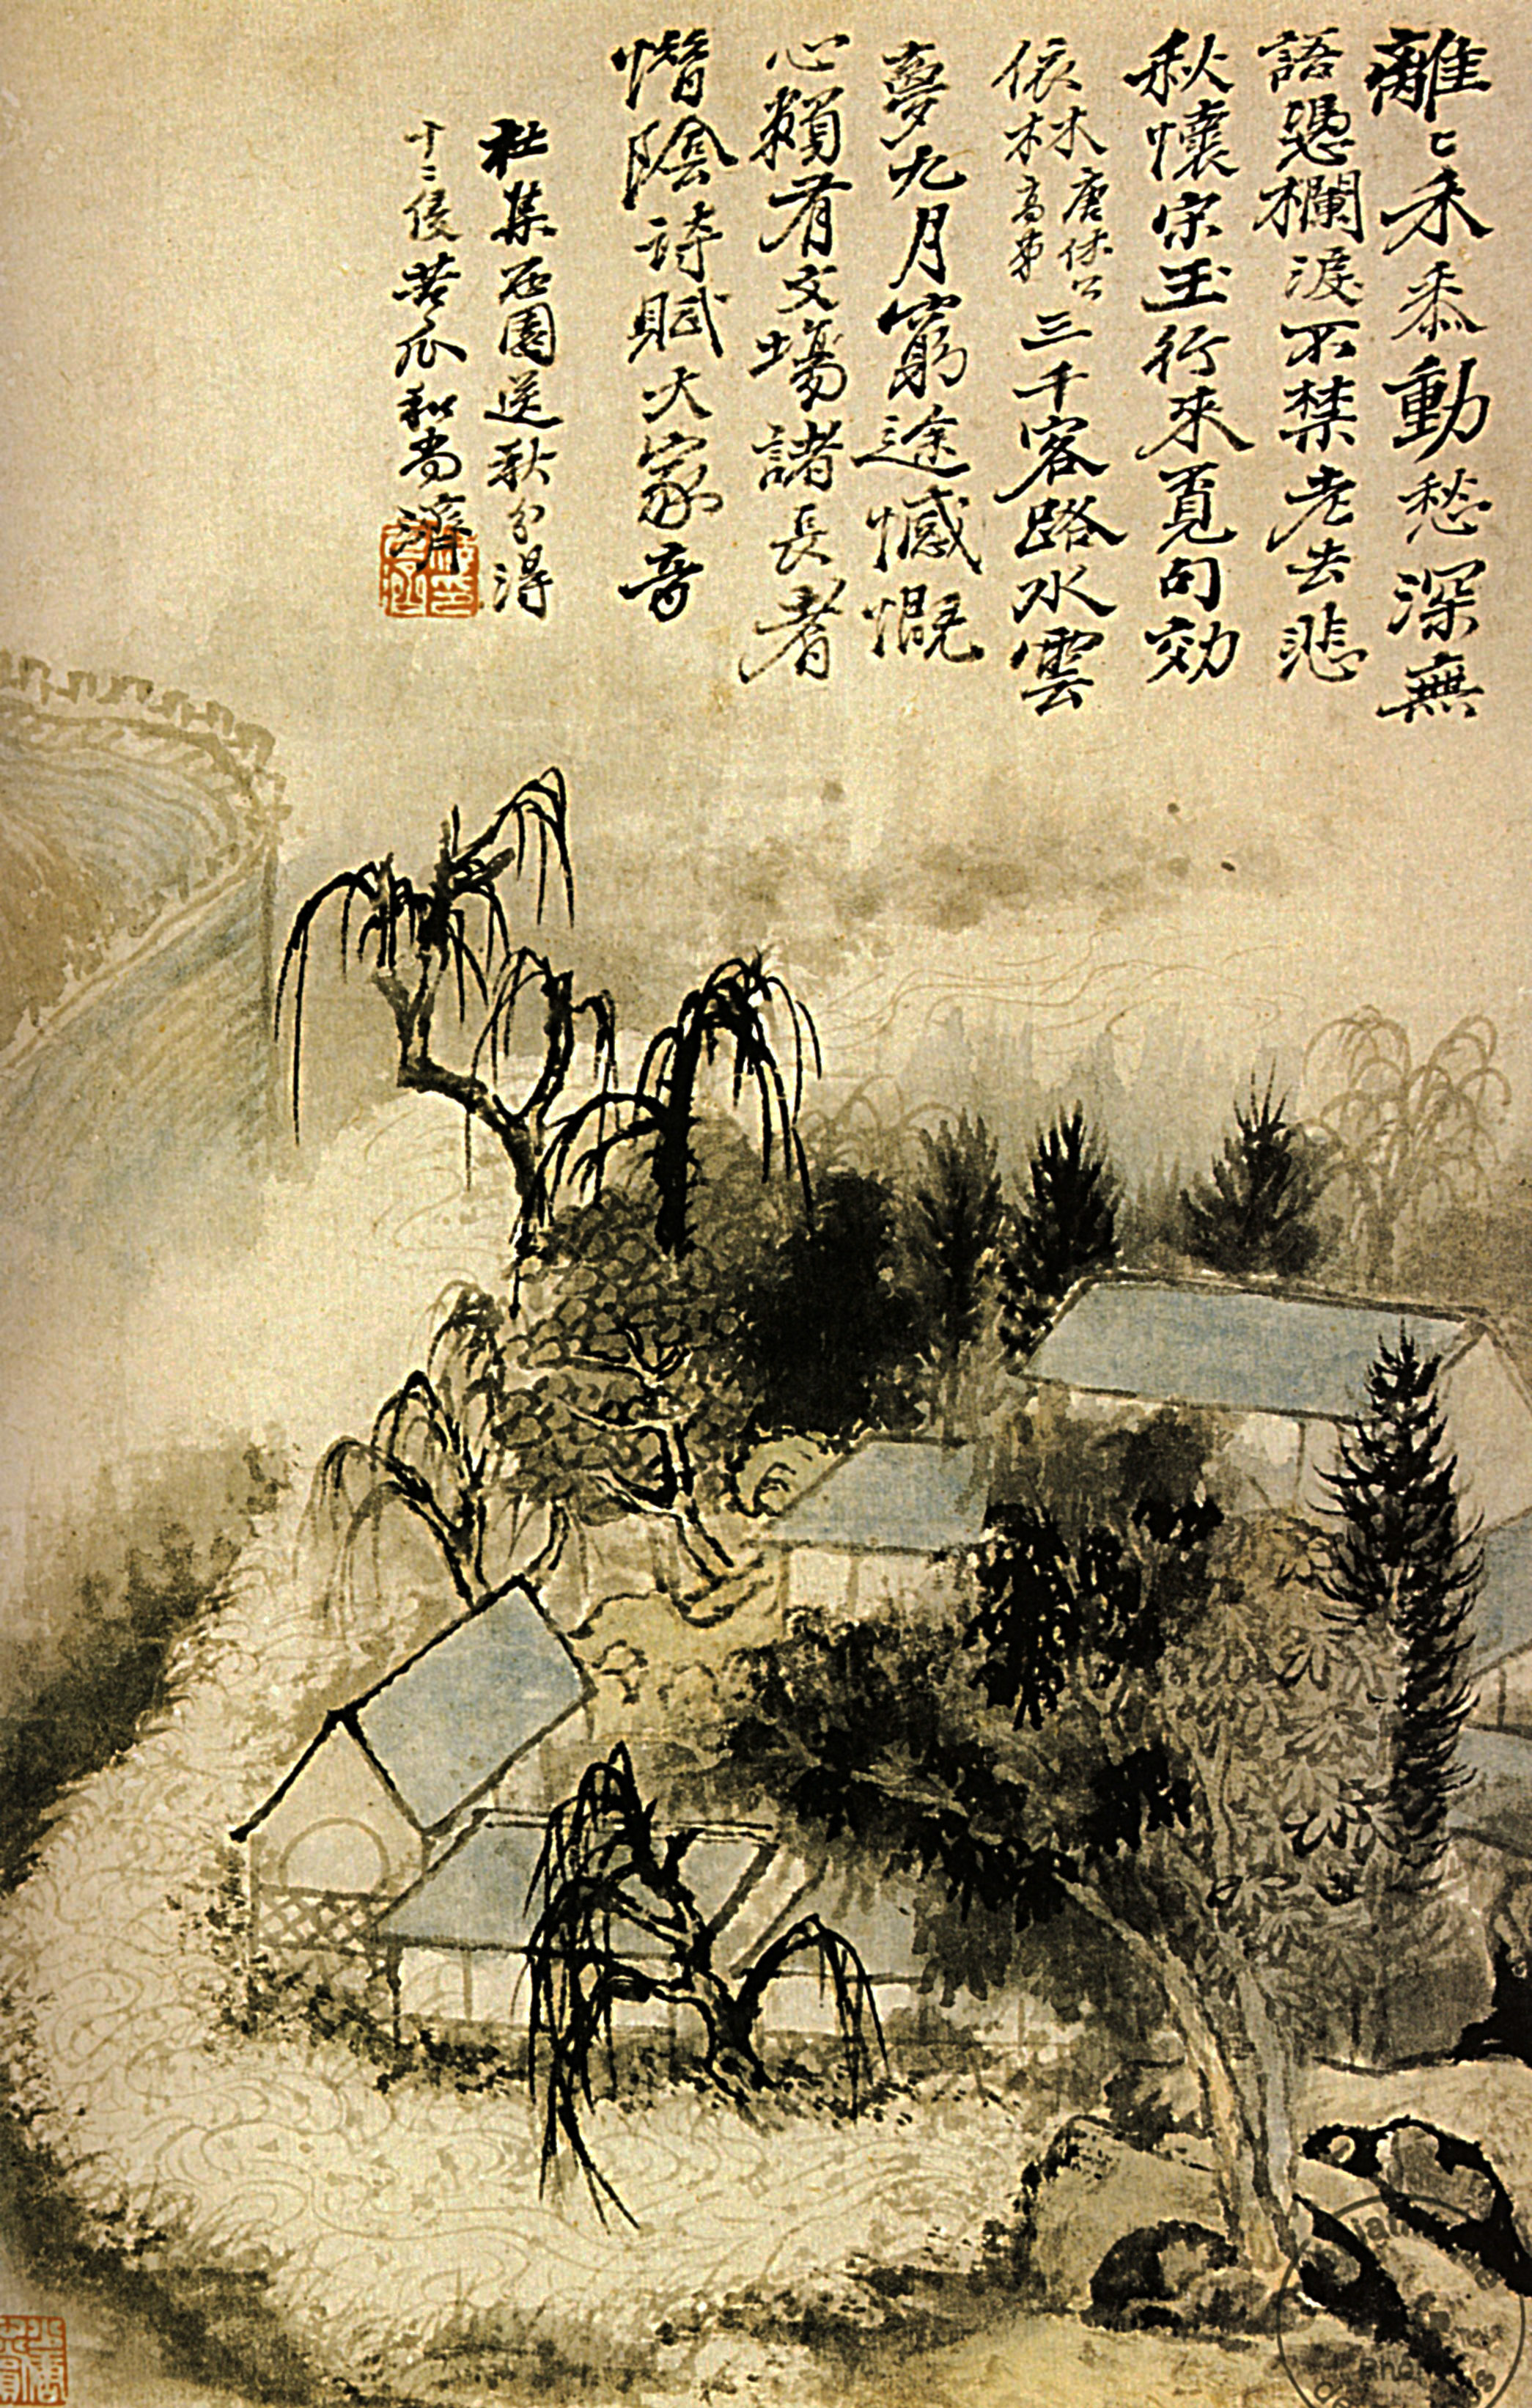 離〻禾黍動愁深無
語憑欄淚不禁老去悲
秋懷宋玉行來覓句効
依林
唐休
高弟
三千客路水雲
夢九月窮途憾慨
心賴有文場諸長者
惜陰詩賦大家音
社集石園送秋分得
十二侵苦瓜和尚濟